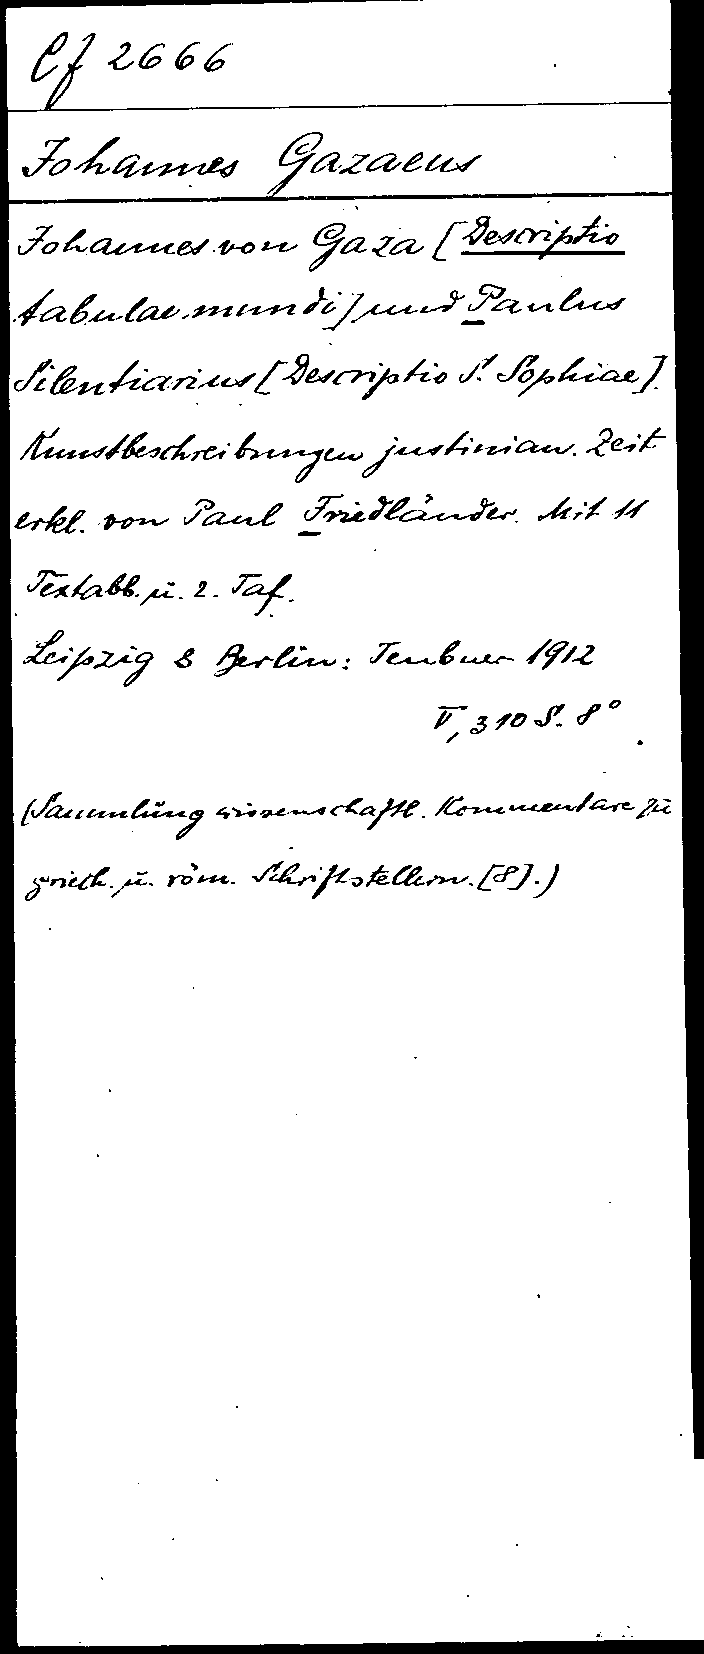 Cf 2666
Johannes Gazaeus
Johannes von Gaza [Descriptio
tabulae mundi] und Paulus
Silentiarius [Descriptio S. Sophiae].
Kunstbeschreibungen justinian. Zeit
erkl. von Paul Friedländer. Mit 11
Textabb. u. 2. Taf.
Leipzig & Berlin: Teubner 1912
V, 310 S. 8°
(Sammlung wissenschaftl. Kommentare zu
griech. u. röm. Schriftstellern. [8].)